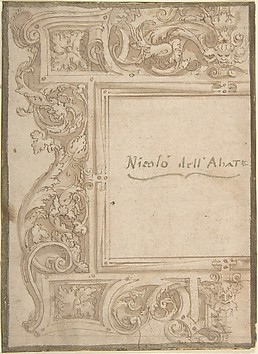 Nicolò dell'Abate